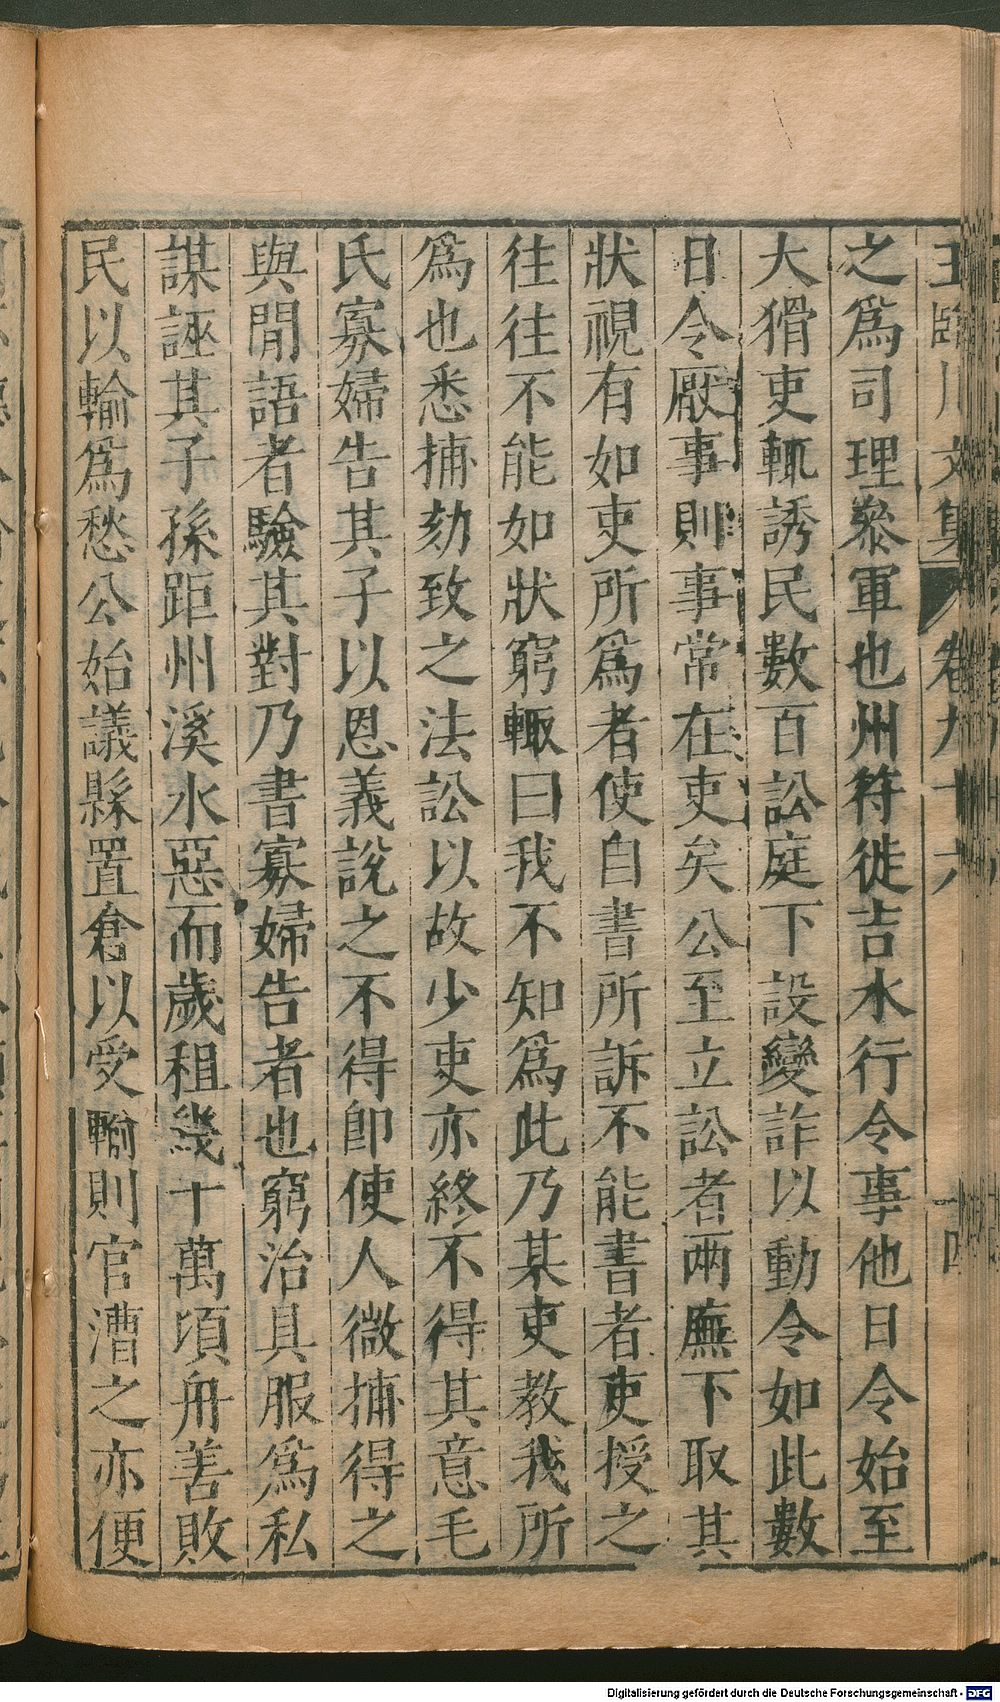 王臨川文集 卷九十六 十四
之爲司理叅軍也州符徙吉水行令事他日令始至
大猾吏輒誘民數百訟庭下設變詐以動令如此數
日令厭事則事常在吏矣公至立訟者两廡下取其
狀視有如吏所爲者使自書所訴不能書者吏授之
往往不能如狀窮輙曰我不知爲此乃某吏教我所
爲也悉捕劾致之法訟以故少吏亦終不得其意毛
氏寡婦告其子以恩義說之不得卽使人微捕得之
與閒語者驗其對乃書寡婦告者也窮治具服爲私
謀誣其子孫距州溪水惡而歲租幾十萬頃舟善敗
民以輸爲愁公始議縣置倉以受輸則官漕之亦便
Digitalisierung gefördert durch die Deutsche Forschungsgemeinschaft - DFG